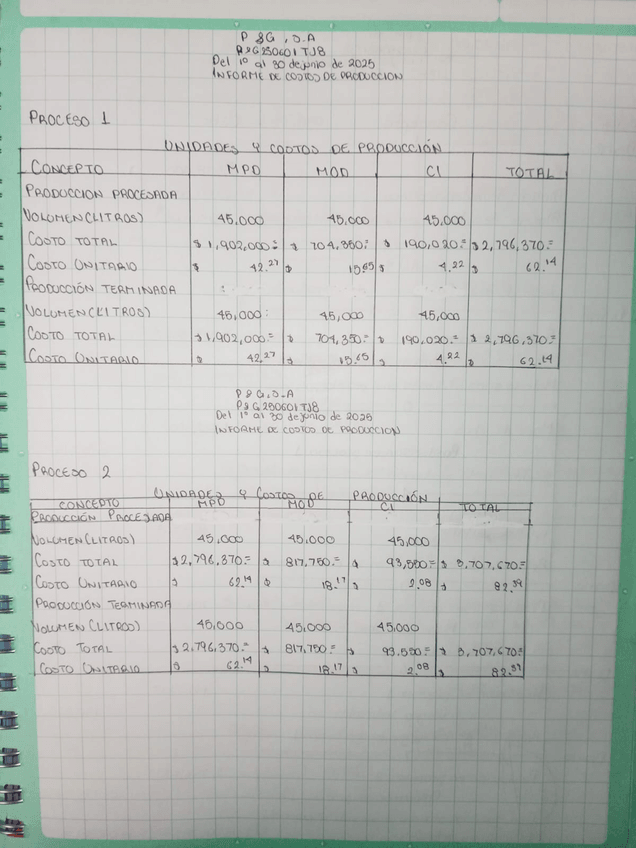 P & G, S.A
P&G250601TJ8
Del 1º al 30 de junio de 2025
INFORME DE COSTOS DE PRODUCCION
PROCESO 1
UNIDADES Y COSTOS DE PRODUCCIÓN
CONCEPTO MPD MOD CI TOTAL
PRODUCCION PROCESADA
VOLUMEN (LITROS) 45,000 45,000 45,000
COSTO TOTAL $1,902,000.= $ 704,350.= $ 190,020.= $2,796,370.=
COSTO UNITARIO $ 42.27 $ 15.65 $ 4.22 $ 62.14
PRODUCCIÓN TERMINADA
VOLUMEN (LITROS) 45,000 45,000 45,000
COSTO TOTAL $1,902,000.= $ 704,350.= $ 190,020.= $ 2,796,370.=
COSTO UNITARIO $ 42.27 $ 15.65 $ 4.22 $ 62.14
P & G, S.A
P&G250601TJ8
Del 1º al 30 de junio de 2025
INFORME DE COSTOS DE PRODUCCION
PROCESO 2
UNIDADES Y COSTOS DE PRODUCCIÓN
CONCEPTO MPD MOD CI TOTAL
PRODUCCIÓN PROCESADA
VOLUMEN (LITROS) 45,000 45,000 45,000
COSTO TOTAL $2,796,370.= $ 817,750.= $ 93,550.= $ 3,707,670.=
COSTO UNITARIO $ 62.14 $ 18.17 $ 2.08 $ 82.39
PRODUCCIÓN TERMINADA
VOLUMEN (LITROS) 45,000 45,000 45,000
COSTO TOTAL $2,796,370.= $ 817,750.= $ 93,550.= $ 3,707,670.=
COSTO UNITARIO $ 62.14 $ 18.17 $ 2.08 $ 82.39